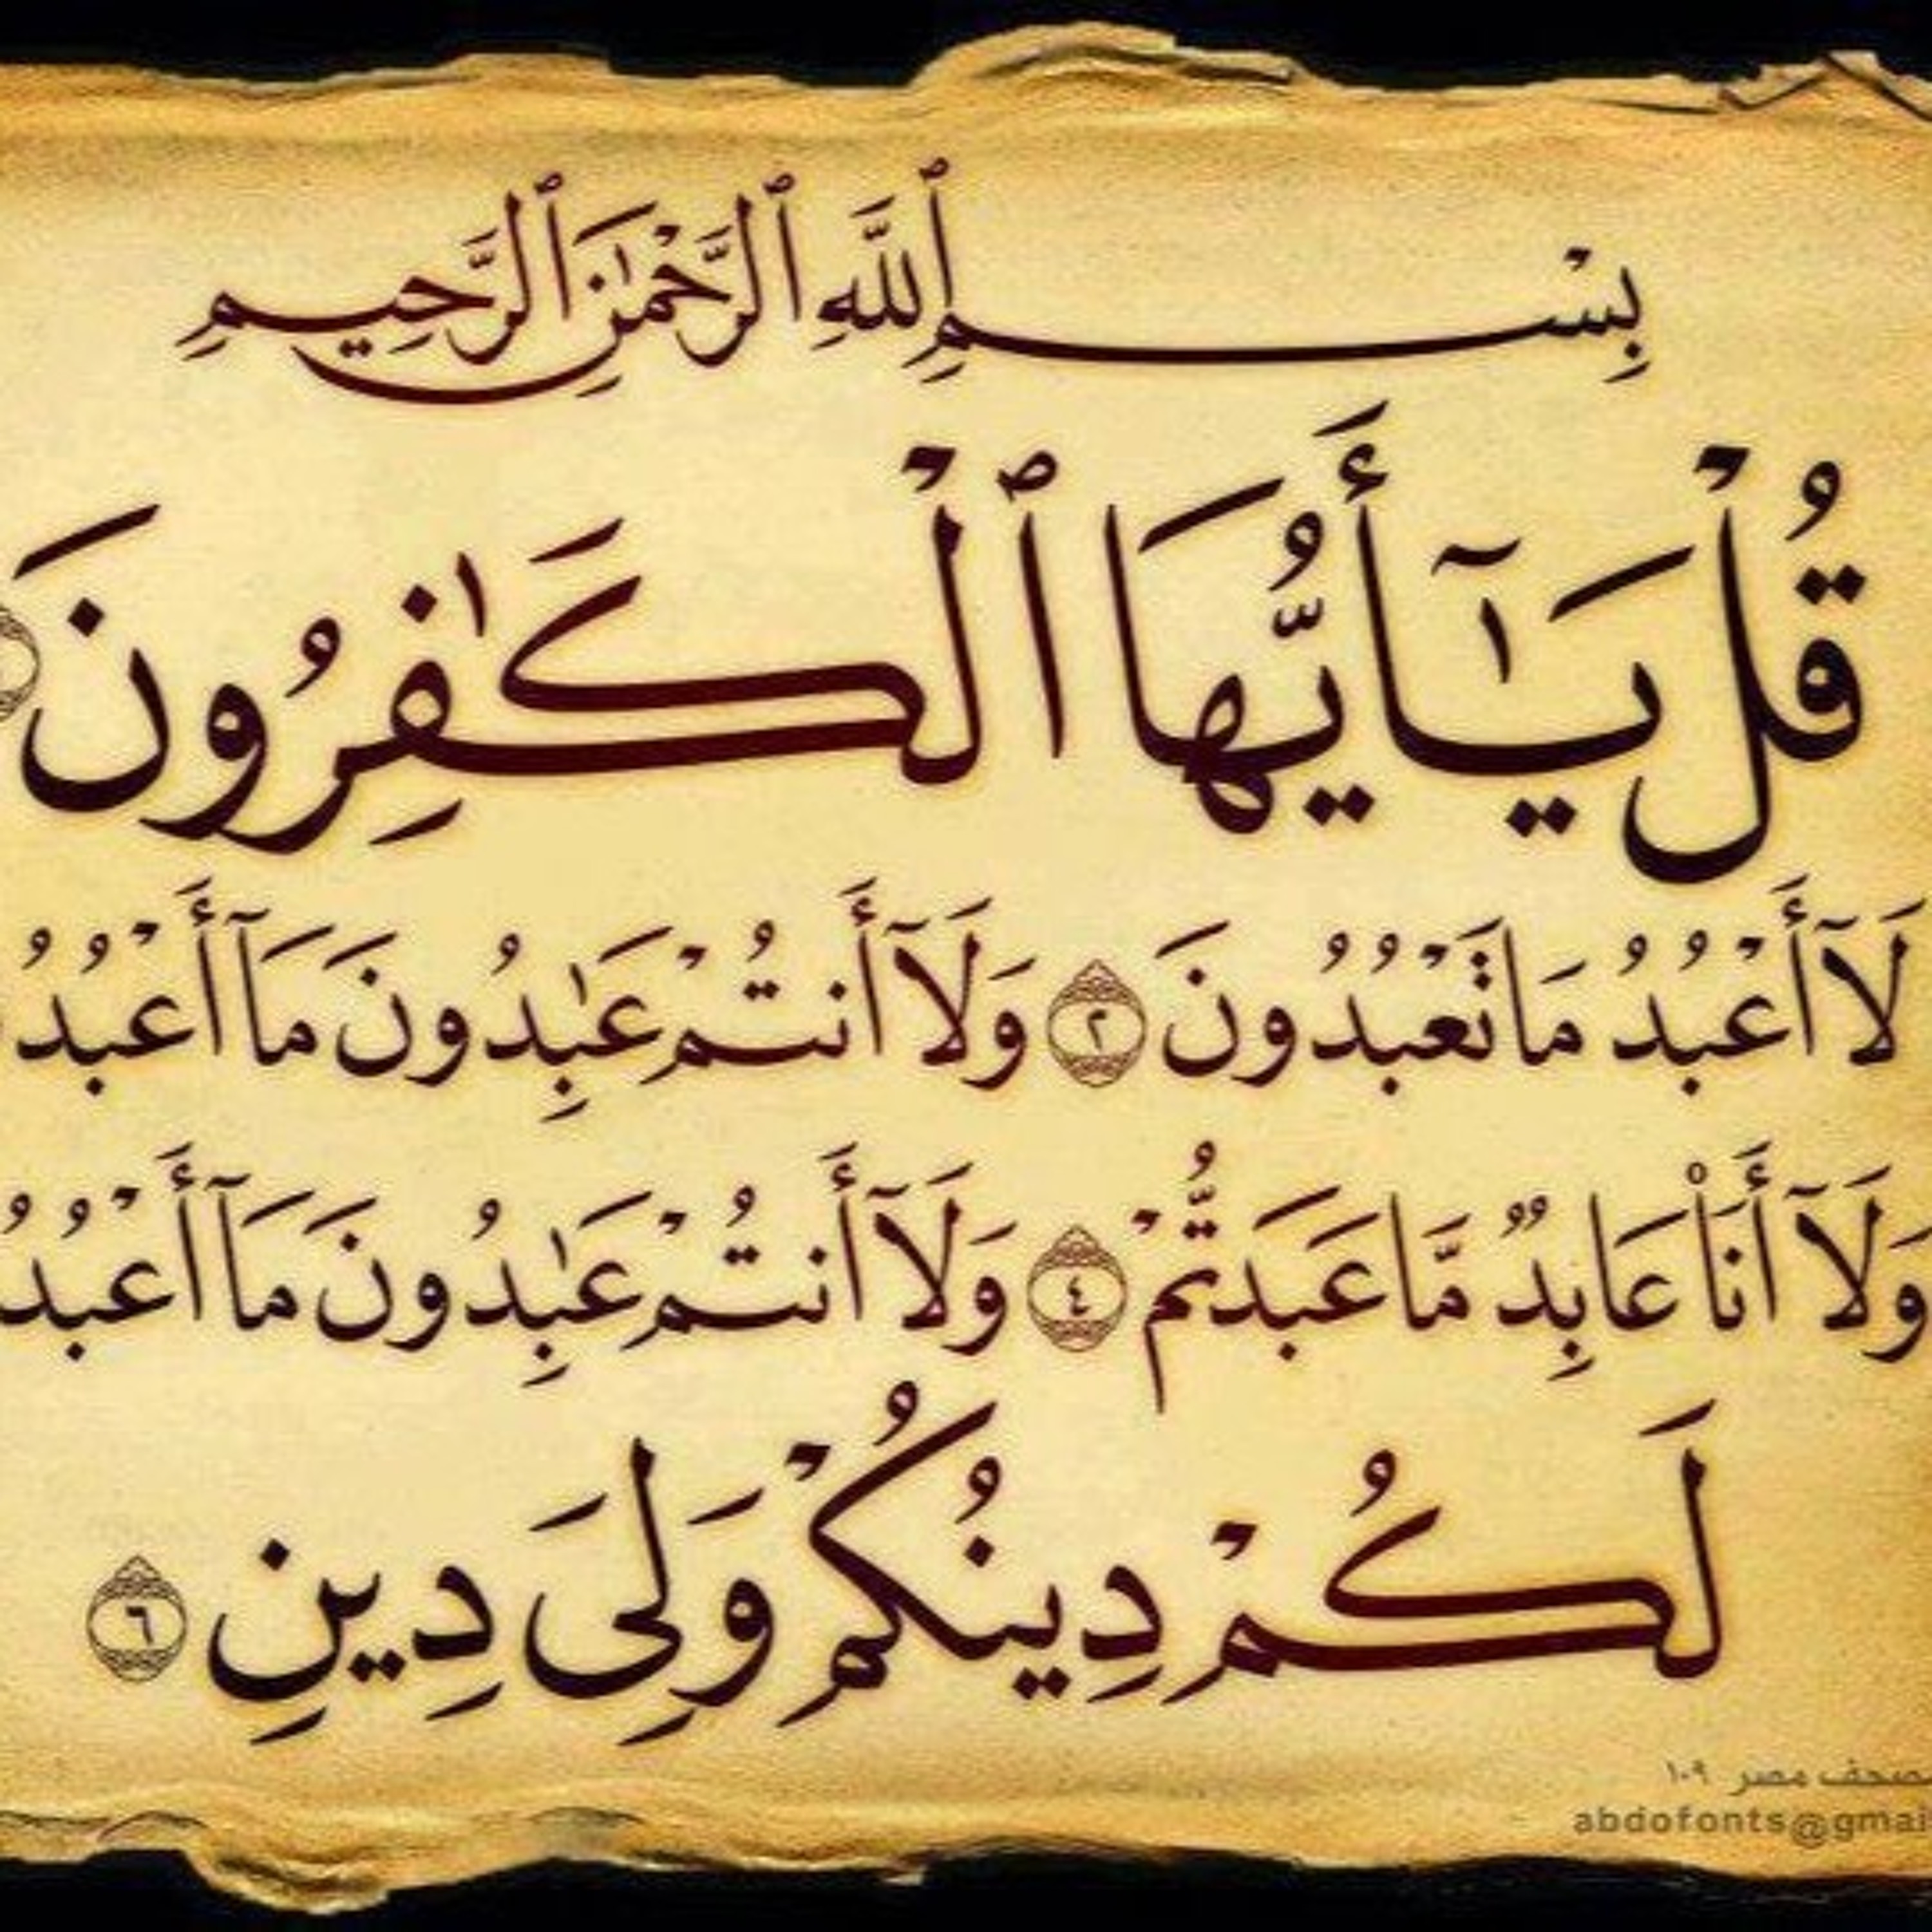 بِسْمِ ٱللَّهِ ٱلرَّحْمَٰنِ ٱلرَّحِيمِ
قُلْ يَٰٓأَيُّهَا ٱلْكَٰفِرُونَ
لَآ أَعْبُدُ مَا تَعْبُدُونَ ٢ وَلَآ أَنتُمْ عَٰبِدُونَ مَآ أَعْبُدُ
وَلَآ أَنَا۠ عَابِدٌ مَّا عَبَدتُّمْ ٤ وَلَآ أَنتُمْ عَٰبِدُونَ مَآ أَعْبُدُ
لَكُمْ دِينُكُمْ وَلِىَ دِينِ ٦
صحف مصر ١٠٩
abdofonts@gmai